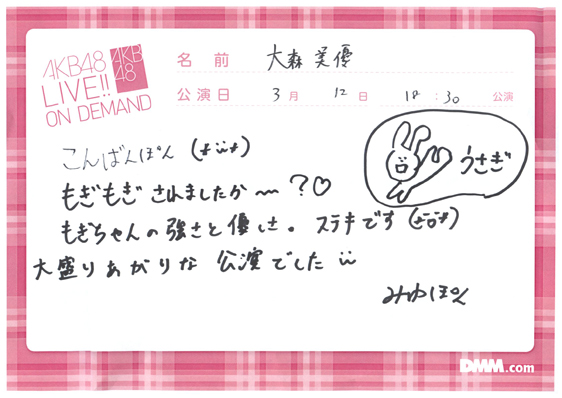 AKB48
LIVE!!
ON DEMAND
AKB
48
名前 大森美優
公演日 3月 12日 18:30 公演
こんばんぽん (+ü+)
うさぎ
もぎもぎ されましたか〜?♡
もぎちゃんの強さと優しさ。ステキです (+ö+)
大盛りあがりな 公演でした ü
みゆぽん
DMM.com